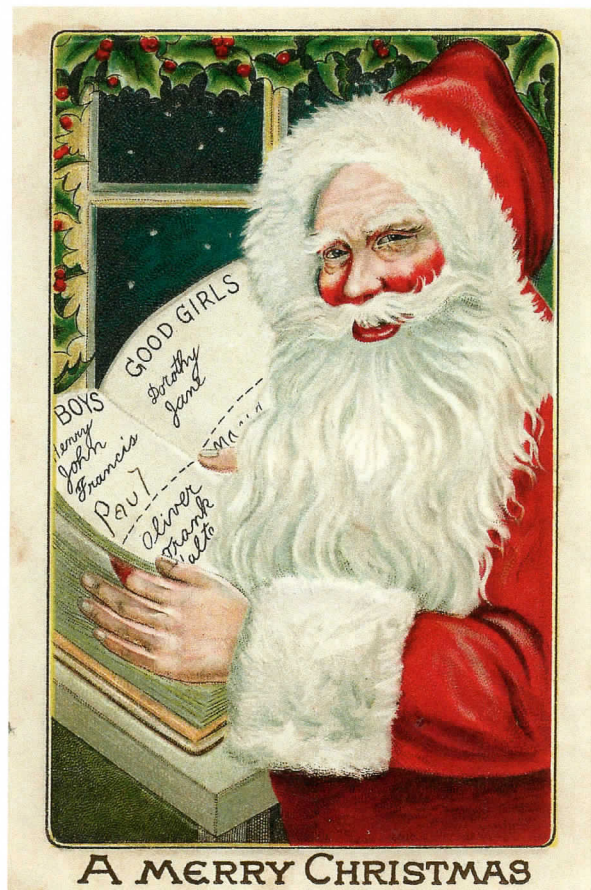 GOOD GIRLS
Dorothy
Jane
BOYS
Henry
John
Francis
Paul
Oliver
Frank
A MERRY CHRISTMAS